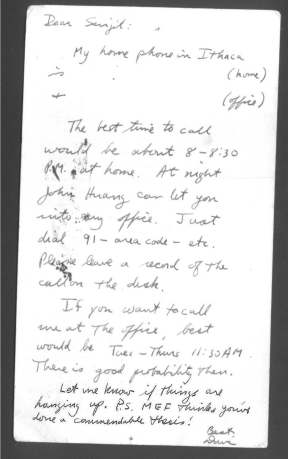 Dear
My home phone in Ithaca
is (home)
+ (office)
The best time to call
would be about 8-8:30
P.M. at home. At night
John Huang can let you
into my office. Just
dial 91-area code-etc.
Please leave a record of the
call on the desk.
If you want to call
me at the office, best
would be Tues-Thurs 11:30 AM.
There is good probability then.
Let me know if things are
hanging up. P.S. MEF thinks you've
done a commendable thesis!
Best,